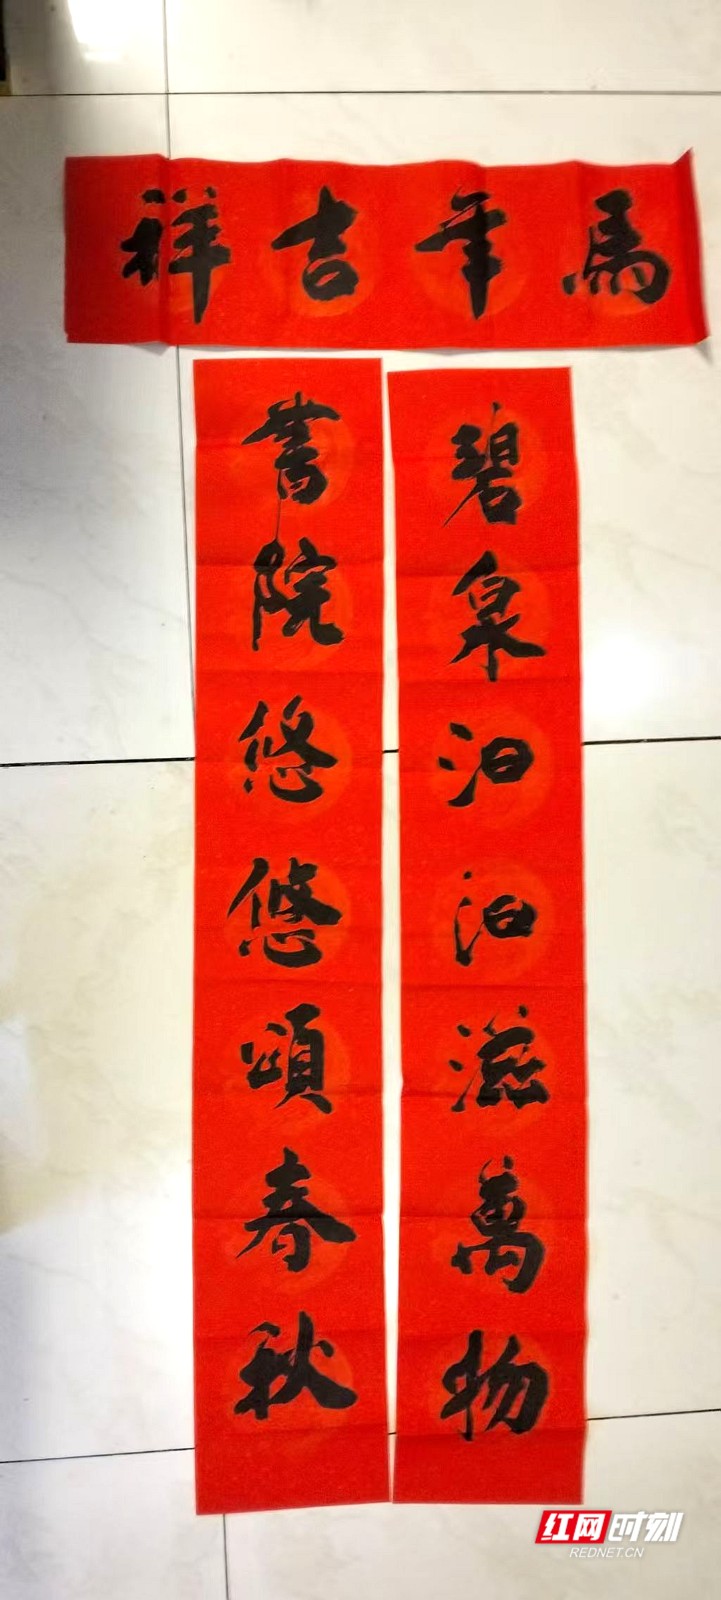 馬年吉祥
碧泉汩汩滋萬物
書院悠悠頌春秋
红网时刻
REDNET.CN